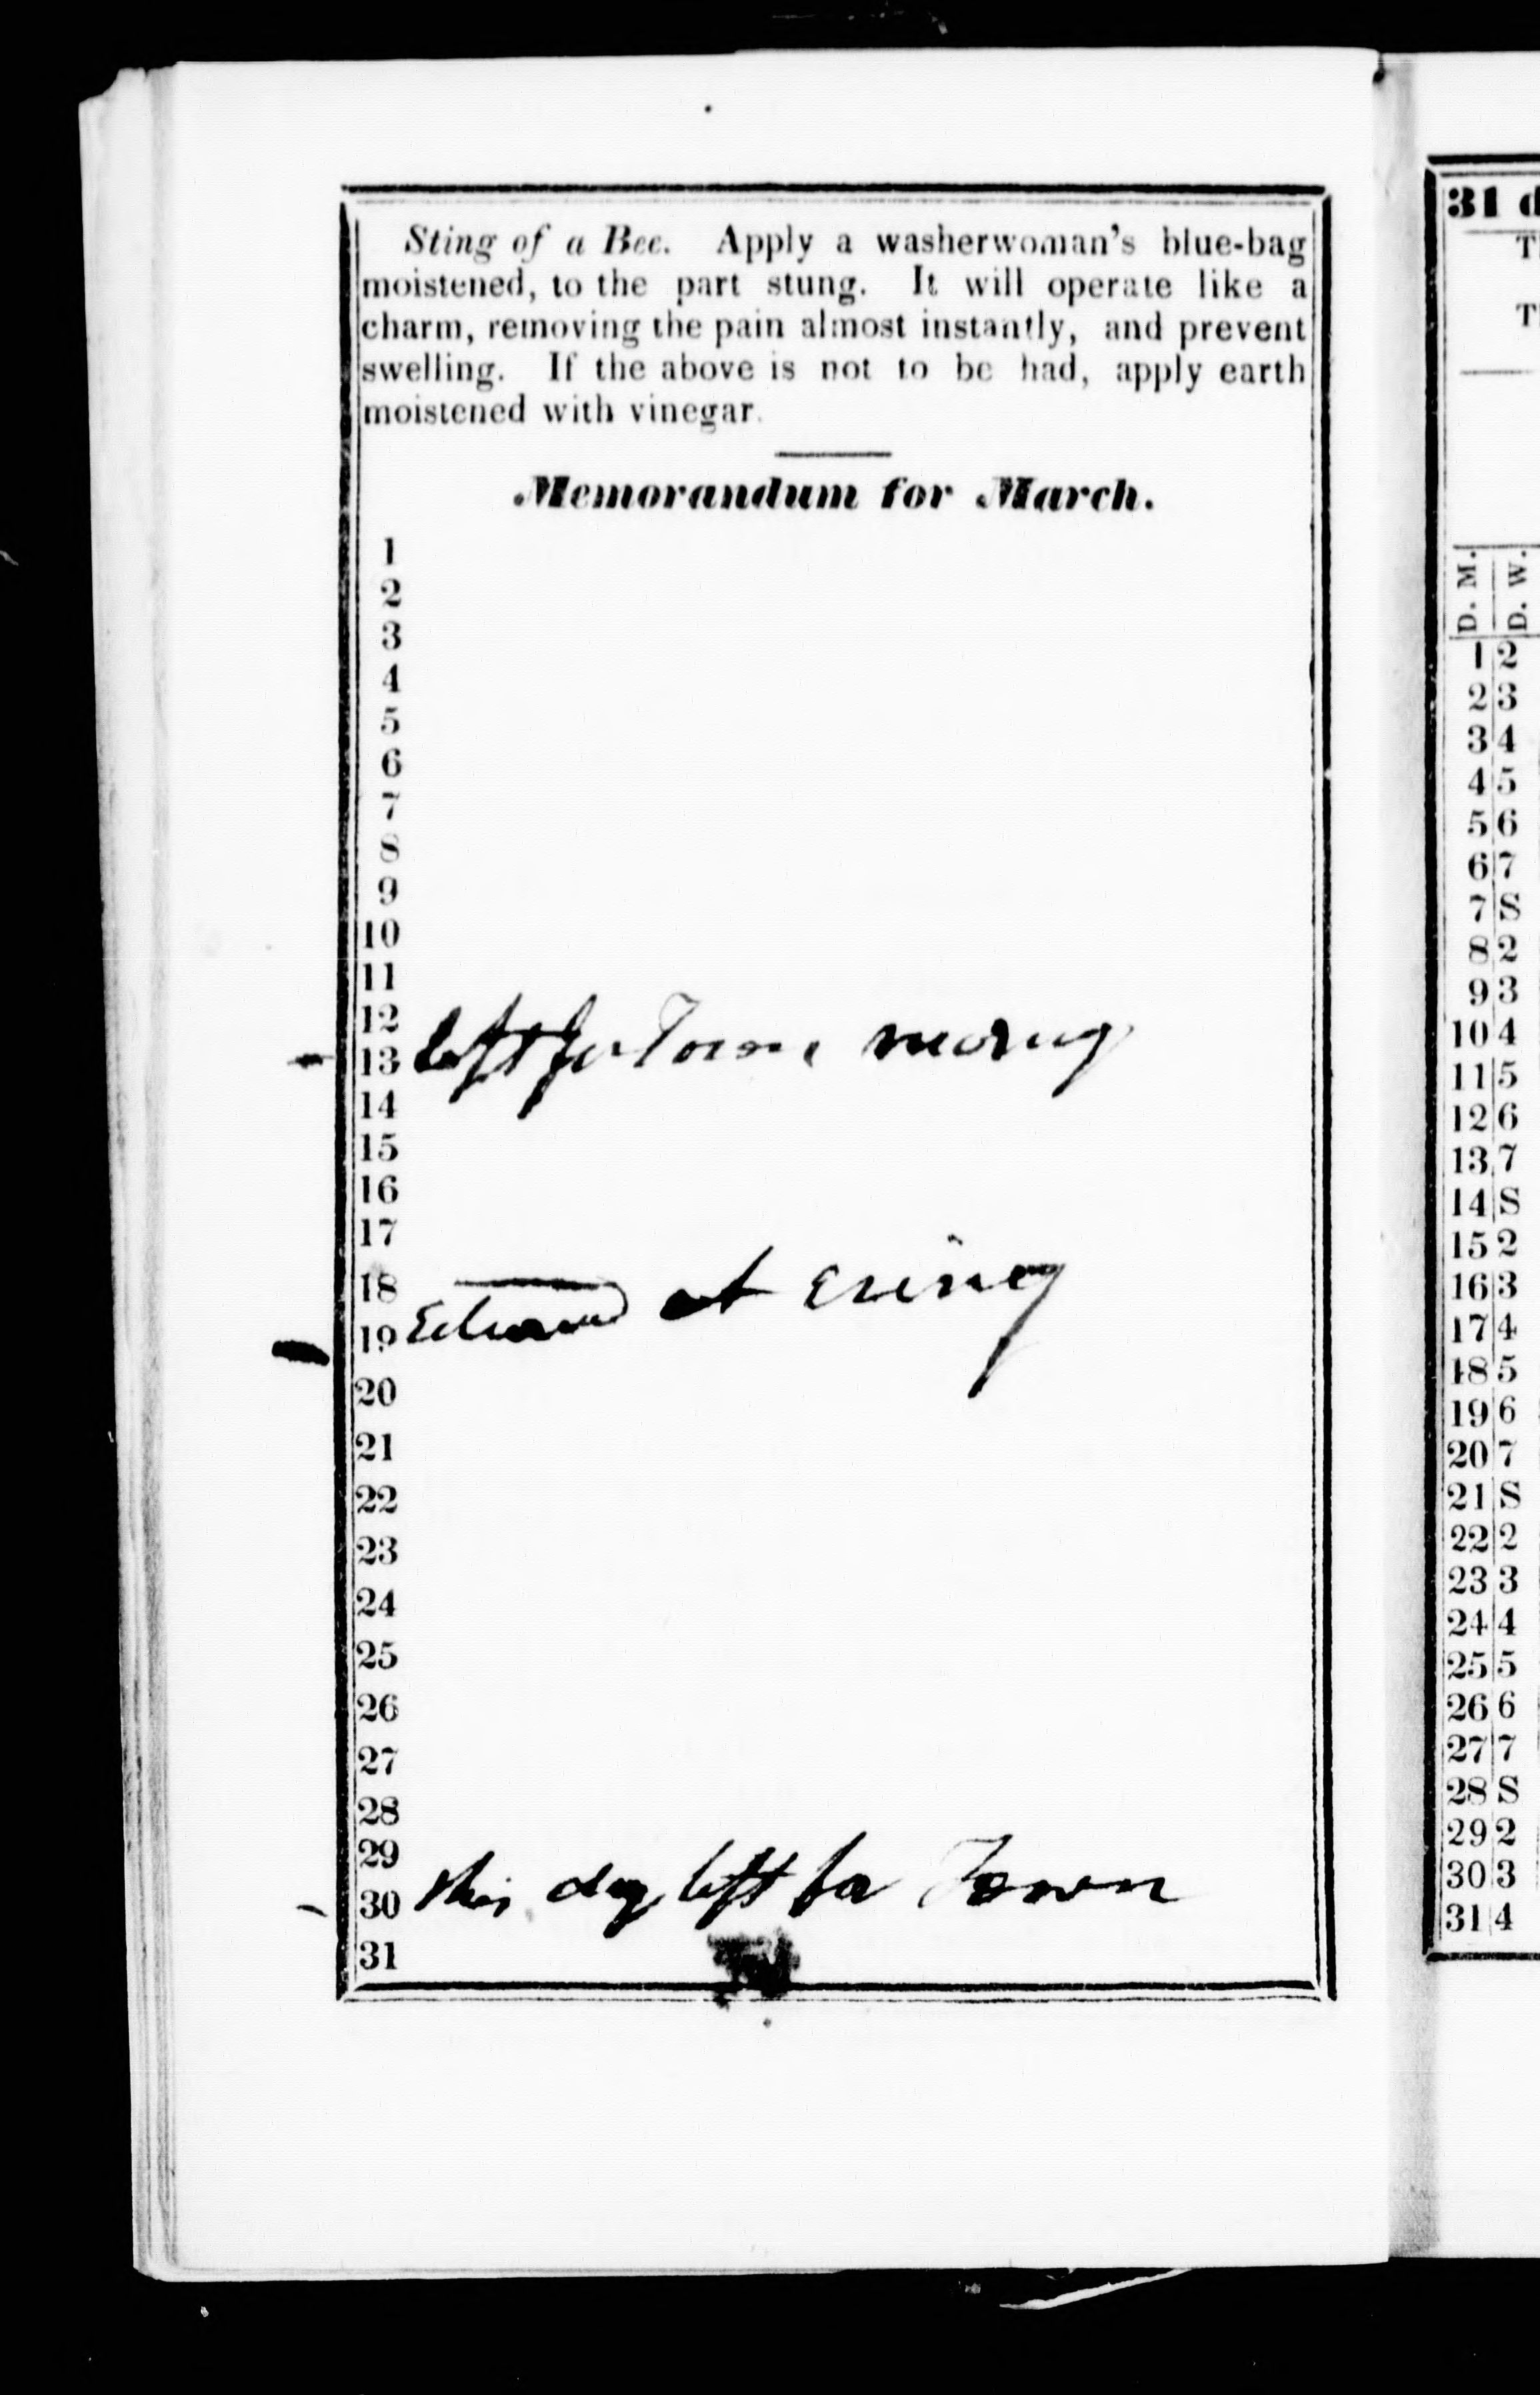 Sting of a Bee. Apply a washerwoman's blue-bag
moistened, to the part stung. It will operate like a
charm, removing the pain almost instantly, and prevent
swelling. If the above is not to be had, apply earth
moistened with vinegar.
Memorandum for March.
1
2
3
4
5
6
7
8
9
10
11
12
13 left for Town
14
15
16
17
18
19 at
20
21
22
23
24
25
26
27
28
29
30 this day left for Town
31
31 d
T
T
D. M. D. W.
1 2
2 3
3 4
4 5
5 6
6 7
7 S
8 2
9 3
10 4
11 5
12 6
13 7
14 S
15 2
16 3
17 4
18 5
19 6
20 7
21 S
22 2
23 3
24 4
25 5
26 6
27 7
28 S
29 2
30 3
31 4